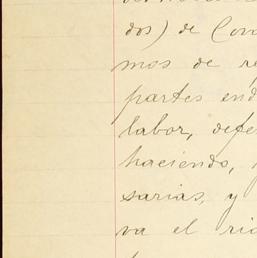 dos) de Con
mos de re
partes end
labor, defe
haciendo,
sarias, y
va el rio